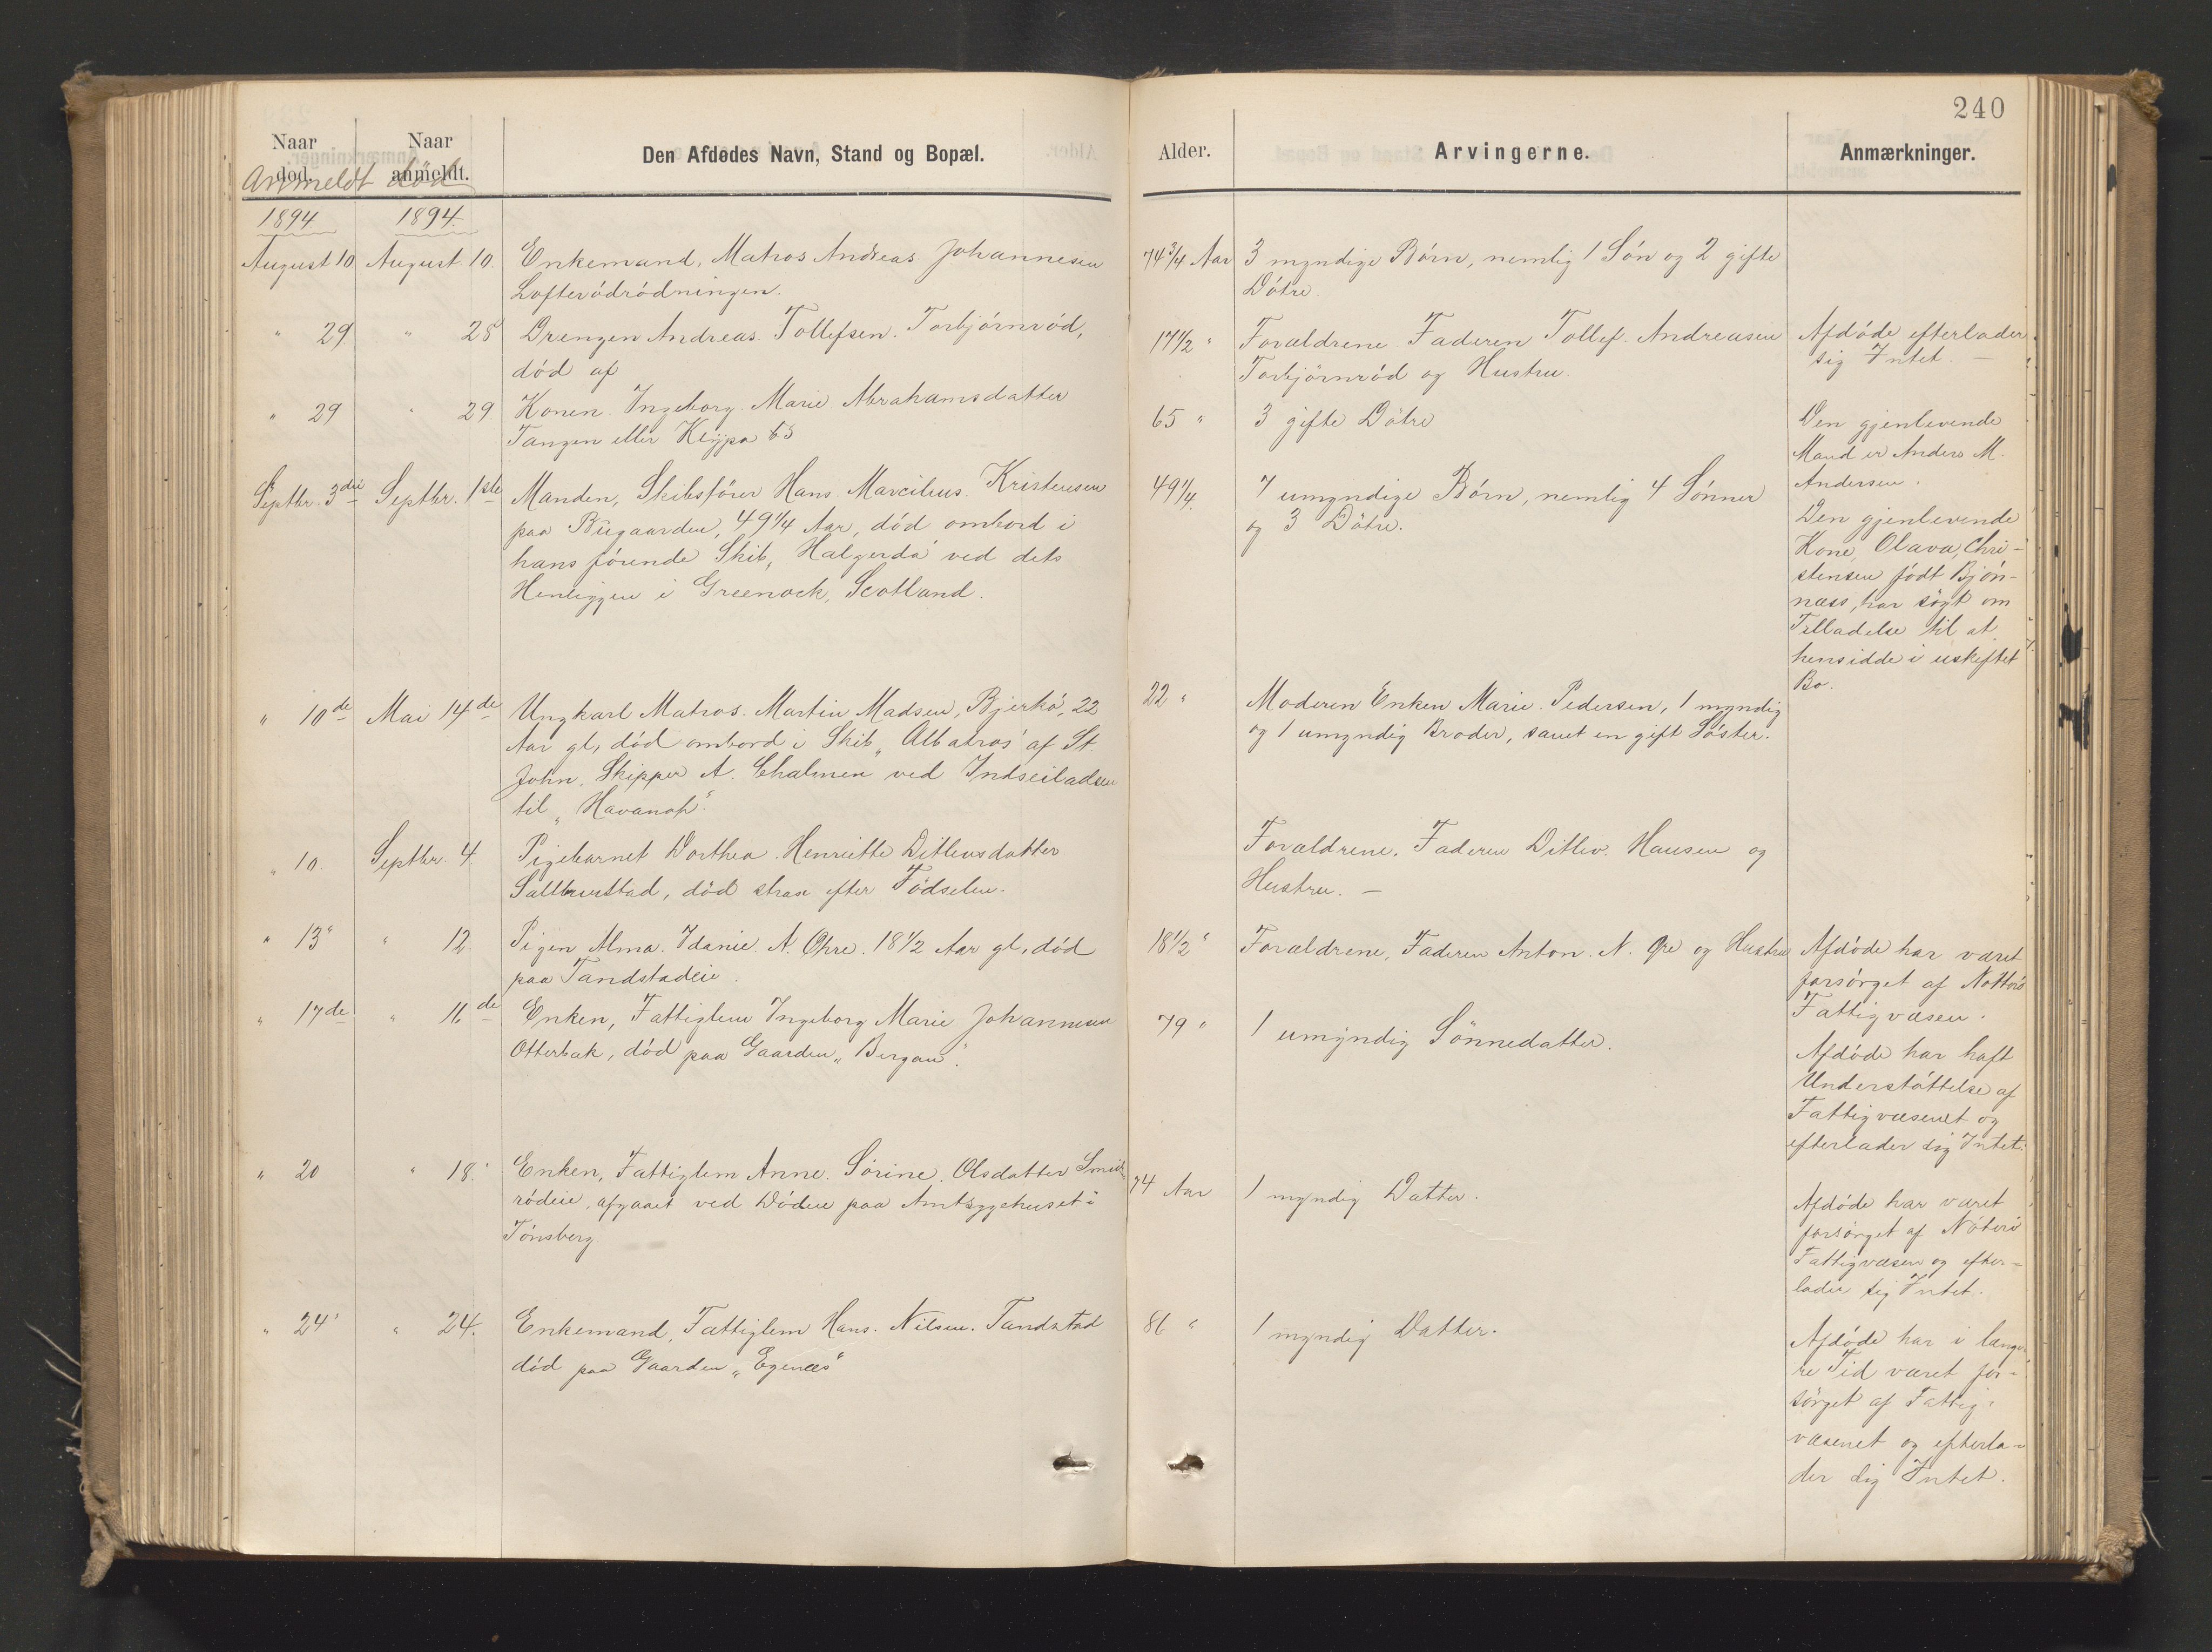 240
Naar
død.
Naar
anmeldt.
Den Afdødes Navn, Stand og Bopæl.
Alder.
Arvingerne.
Anmærkninger.
Anmeldt død
1894 1894.
August 10 August 10. Enkemand, Matros Andreas Johannesen
Lofterödrödningen.
74 3/4 Aar 3 myndige Börn, nemlig 1 Sön og 2 gifte
Dötre.
" 29 " 28 Drengen Andreas Tollefsen. Torbjörnröd,
död af
17 1/2 " Forældrene Faderen Tollef. Andreasen
Torbjörnröd og Hustru.
Afdöde efterlader
sig Intet. —
" 29 " 29 Konen. Ingeborg. Marie Abrahamsdatter
Tangen eller Kleppa
65 " 3 gifte Dötre
Den gjenlevende
Mand er Anders M.
Andersen.
Septbr. 3die Septbr. 1ste Manden, Skibsförer Hans. Marcilius. Kristensen
paa Bugaarden, 49 1/4 Aar, död ombord i
hans förende Skib, "Halgerda" ved dets
Henliggen i Greenock, Scotland.
49 1/4. 7 umyndige Börn, nemlig 4 Sönner
og 3 Dötre.
Den gjenlevende
Kone, Olava, Chri-
stensen födt Bjön-
næss, har sögt om
Tilladelse til at
hensidde i uskiftet
Bo.
" 10de Mai 14de Ungkarl Matros. Martin Madsen, Bjerkö, 22
Aar gl, död ombord i Skib "Albatros" af St.
John. Skipper A. Chalmen" ved Indseiladsen
til "Havanah".
22 " Moderen Enken Marie. Pedersen, 1 myndig
og 1 umyndig Broder, samt en gift Söster.
" 10. Septbr. 4. Pigebarnet Dorthea. Henriette Ditlevsdatter
död strax efter Födselen.
Forældrene. Faderen Ditlev. Hansen og
Hustru. —
" 13 " " 12. Pigen Alma. Idanie. N. Ohre. 18 1/2 Aar gl, död
paa Tandstadeie.
18 1/2 " Forældrene, Faderen Anton. N. Øre og Hustru
Afdöde har været
forsörget af Nötterö
Fattigvæsen.
" 17de " 16de Enken, Fattiglem Ingeborg Marie Johannesen
Otterbæk, död paa Gaarden "Bergan".
79 " 1 umyndig Sönnedatter.
Afdöde har haft
Understöttelse af
Fattigvæsenet og
efterlader sig Intet.
" 20 " 18. Enken, Fattiglem Anne. Sörine. Olsdatter Smid-
rödeie, afgaaet ved Döden paa Amtsygehuset i
Tönsberg.
74 Aar 1 myndig Datter.
Afdöde har været
forsörget af Nöterö
Fattigvæsen og efter-
lader sig Intet.
" 24 " " 24. Enkemand, Fattiglem Hans. Nilsen. Tandstad
död paa Gaarden "Egenes"
86 " 1 myndig Datter.
Afdöde har i længe-
re Tid været for-
sörget af Fattig-
væsenet og efterla-
der sig Intet.